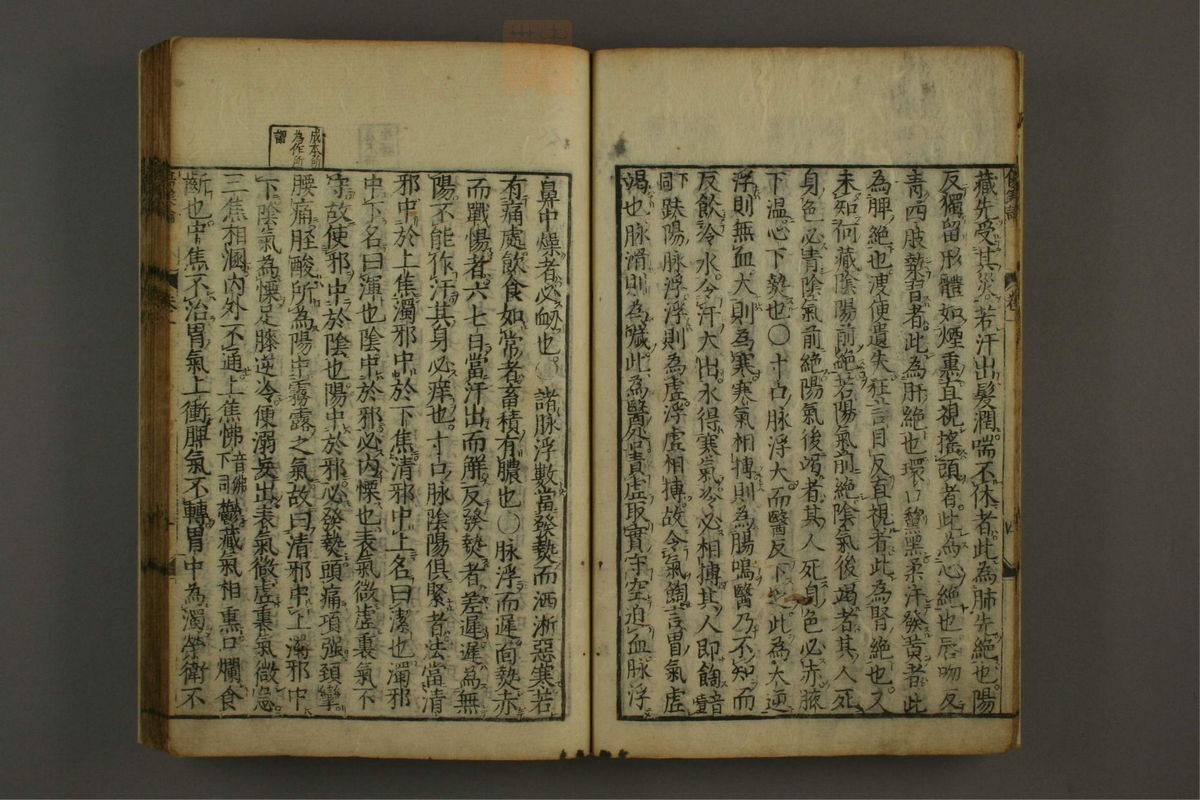 藏先受其災若汗出髮潤喘不休者此為肺先絶也陽
反獨留形體如煙熏直視搖頭者此為心絶也唇吻反
青四肢漐習者此為肝絶也環口黧黑柔汗發黃者此
為脾絶也溲便遺失狂言目反直視者此為腎絶也又
未知何藏陰陽前絶若陽氣前絶陰氣後竭者其人死
身色必青陰氣前絶陽氣後竭者其人死身色必赤腋
下温心下熱也〇寸口脉浮大而醫反下之此為大逆
浮則無血大則為寒寒氣相摶則為腸鳴醫乃不知而
反飲冷水令汗大出水得寒氣冷必相摶其人即䭇音
下同趺陽脉浮浮則為虛浮虛相摶故令氣䭇言胃氣虛
竭也脉滑則為噦此為醫咎責虛取實守空迫血脉浮
鼻中燥者必衂也〇諸脉浮數當發熱而洒淅惡寒若
有痛處飲食如常者畜積有膿也〇脉浮而遲面熱赤
而戰惕者六七日當汗出而解反發熱者差遲遲為無
陽不能作汗其身必痒也寸口脉陰陽俱緊者法當清
邪中於上焦濁邪中於下焦清邪中上名曰潔也濁邪
中下名曰渾也陰中於邪必内慄也表氣微虛裏氣不
守故使邪中於陰也陽中於邪必發熱頭痛項强頸攣
腰痛脛酸所為陽中霧露之氣故曰清邪中上濁邪中
下陰氣為慄足膝逆冷便溺妄出表氣微虛裏氣微急
三焦相溷内外不通上焦怫音佛下同鬱藏氣相熏口爛食
齗也中焦不治胃氣上衝脾氣不轉胃中為濁榮衛不
成本所
為作所
謂
卷一